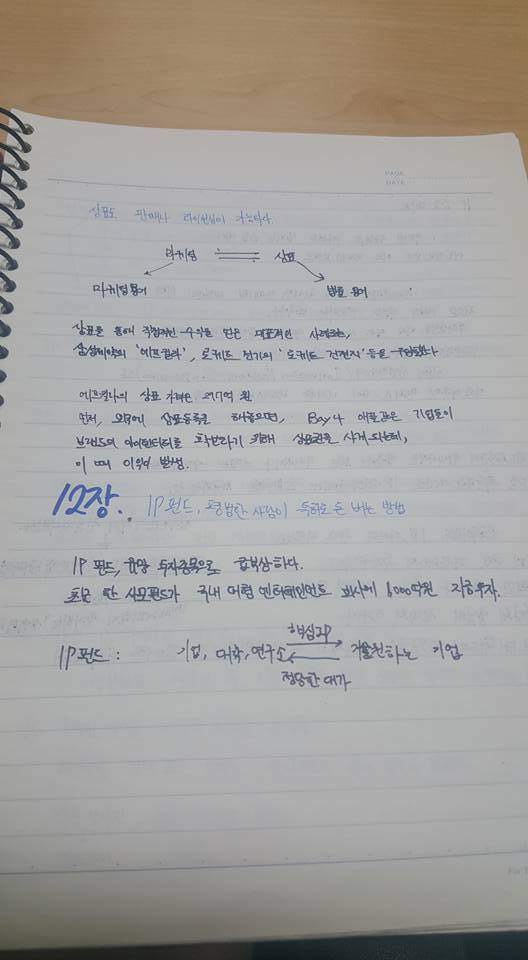 PAGE
DATE
상표도 판매나 라이선싱이 가능하다.
마케팅 상표
마케팅 용어 법률 용어
상표를 통해 직접적인 수익을 얻은 대표적인 사례로는,
삼성제약의 '에프킬라', 로케트 전기의 '로케트 건전지' 등을
에프킬라의 상표 가치는 297억 원
먼저, 외국에 상표등록을 해놓으면, 애플같은 기업들이
브랜드의 아이덴티티를 확보하기 위해 상표권을 사게 되는데,
이 때 이익이 발생.
12장. IP 펀드, 평범한 사람이 특허로 돈 버는 방법
IP 펀드, 유망 투자종목으로 급부상하다.
최근 한 사모펀드가 국내 대형 엔터테인먼트 회사에 1000억원 지분투자.
핵심 IP
IP 펀드 : 기업, 대학, 연구소 기술원하는 기업
정당한 대가